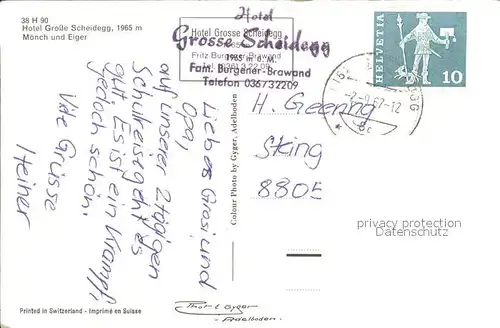 38 H 90
Hotel Große Scheidegg, 1965 m
Mönch und Eiger
Hotel
Grosse Scheidegg
1965 m ü. M.
Fam. Burgener-Brawand
Telefon 036/732209
Hotel Grosse Scheidegg
Fritz Burgener-Brawand
HELVETIA
10
-2.-9.67-12
Liebes Grosi und
Opa,
auf unserer 2tägigen
Schulreise geht es
gut. Es ist ein Krampf,
jedoch schön.
Viele Grüsse
Heiner
H. Geering
8805
Colour Photo by Gyger, Adelboden
privacy protection
Datenschutz
Printed in Switzerland - Imprimé en Suisse
Gyger
Adelboden